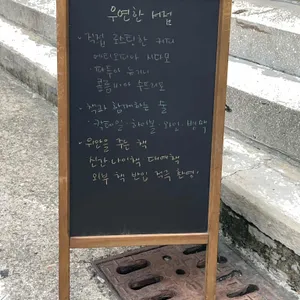 우연한 서점
· 직접 로스팅한 커피
에티오피아 시다모
파푸아 뉴기니
콜롬비아 수프리모
· 책과 함께하는 술
· 칵테일 · 하이볼 · 와인 · 맥주
· 위안을 주는 책
신간 나이책 대여책
외부 책 반입 적극 환영